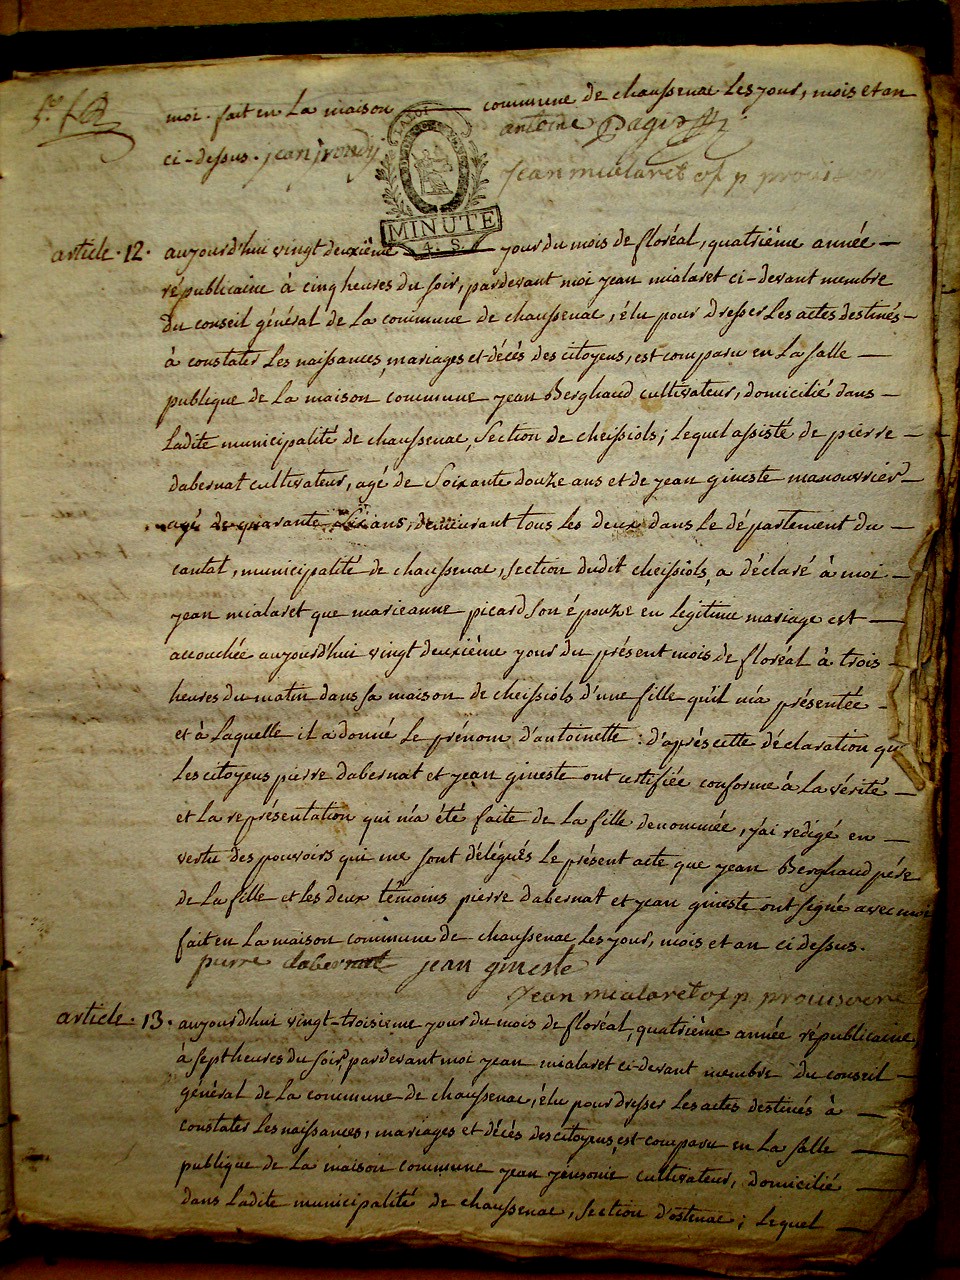 5.e f.R
moi. fait en La maison commune de chaussenac Les jour, mois et an
ci-dessus. jean antoine Pagis
LA LOI
jean mialaret of p
MINUTE
4. S.
article. 12. aujourd'hui vingt deuxième jour du mois de floréal, quatrième année
républicaine à cinq heures du soir, pardevant moi jean mialaret ci-devant membre
Du conseil général de La commune de chaussenac, élu pour dresser Les actes destinés
à constater Les naissances, mariages et décés des citoyens, est comparu en La salle
publique de La maison commune jean Berghaud cultivateur, domicilié dans
Ladite municipalité de chaussenac, Section de cheissiols; Lequel assisté de pierre
dabernat cultivateur, agé de Soixante douze ans et de jean gineste manouvrier
agé de quarante Six ans, demeurant tous Les deux dans Le département du
cantal, municipalité de chaussenac, section dudit cheissiols, a déclaré à moi
jean mialaret que marieanne picard son épouze en Legitime mariage est
accouchée aujourd'hui vingt deuxième jour du présent mois de floréal à trois
heures du matin dans sa maison de cheissiols d'une fille qu'il m'a présentée
et à Laquelle il a donné Le prénom d'antoinette: d'après cette déclaration que
Les citoyens pierre dabernat et jean gineste ont certifiée conforme à La vérité
et La représentation qui m'a été faite de La fille denommée, j'ai redigé en
vertu des pouvoirs qui me sont délégués Le présent acte que jean Berghaud pére
de La fille et les deux témoins pierre dabernat et jean gineste ont signé avec moi
fait en La maison commune de chaussenac Les jour, mois et an ci dessus.
pierre dabernat jean gineste
jean mialaret of p provisoere
article. 13. aujourd'hui vingt-troisieme jour du mois de floréal, quatrième année républicaine,
à sept heures du soir, pardevant moi jean mialaret ci-devant membre du conseil
général de La commune de chaussenac, élu pour dresser Les actes destinés à
constater Les naissances, mariages et décés des citoyens, est comparu en La salle
publique de La maison commune jean cultivateur, domicilié
dans Ladite municipalité de chaussenac, section d'ostenac; Lequel